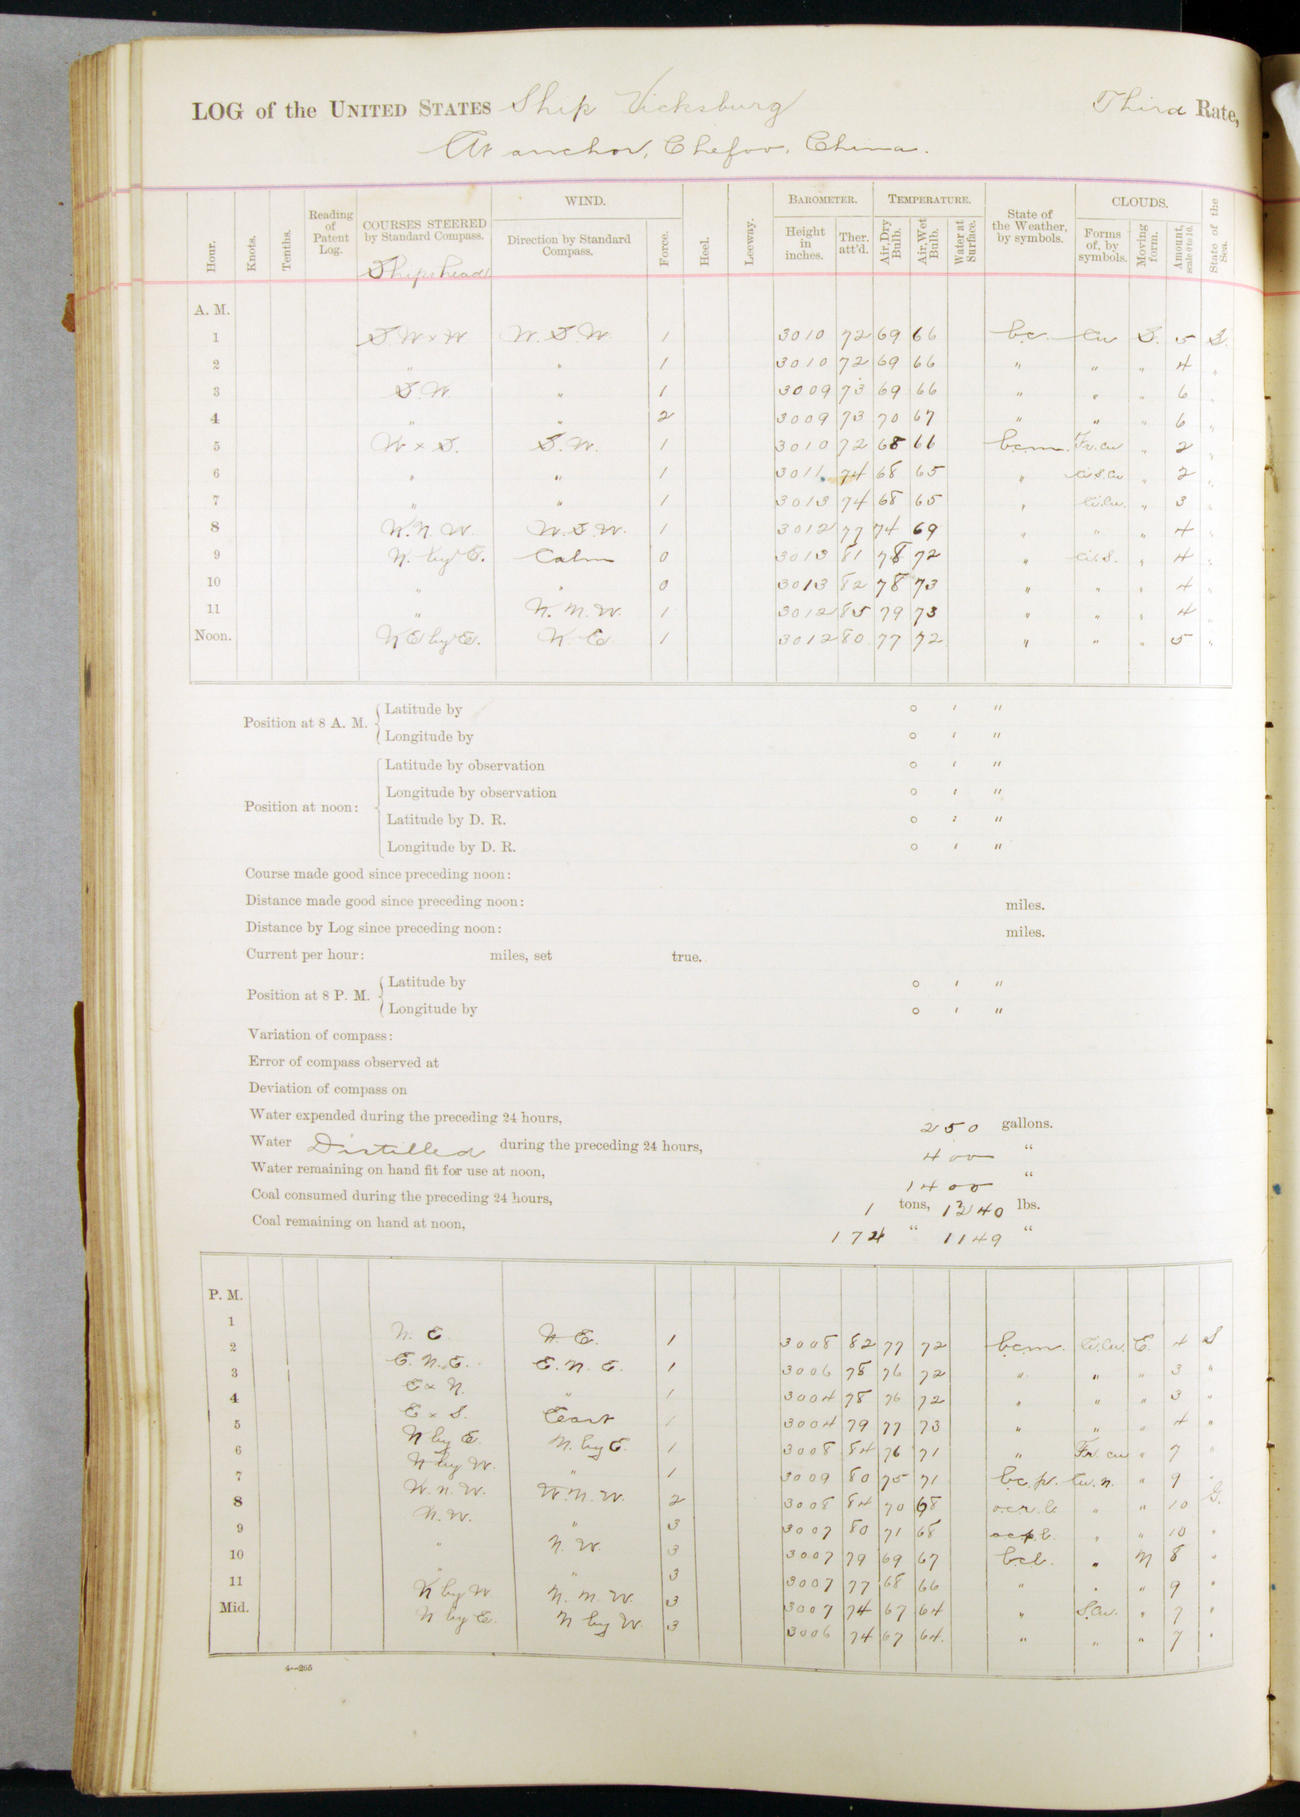 LOG of the UNITED STATES Ship Vicksburg Third Rate,
At anchor, Chefoo, China.
Hour. Knots. Tenths. Reading of Patent Log. COURSES STEERED by Standard Compass. WIND. Direction by Standard Compass. Force. Heel. Leeway. BAROMETER. Height in inches. Ther. att'd. TEMPERATURE. Air, Dry Bulb. Air, Wet Bulb. Water at Surface. State of the Weather, by symbols. CLOUDS. Forms of, by symbols. Moving form. Amount, scale 0 to 10. State of the Sea.
Ships head
A. M.
1 S W x W W. S. W. 1 3010 72 69 66 bc. Cu S. 5 S.
2 " " 1 3010 72 69 66 " " " 4 "
3 S. W " 1 3009 73 69 66 " " " 6 "
4 " " 2 3009 73 70 67 " " " 6 "
5 W x S. S. W. 1 3010 72 68 66 bcm. Fr. cu " 2 "
6 " " 1 3011 74 68 65 " ci s. cu " 2 "
7 " " 1 3013 74 68 65 " ci. cu. " 3 "
8 W. N. W. W. S. W. 1 3012 77 74 69 " " " 4 "
9 N. by E. Calm 0 3013 81 78 72 " ci. s. " 4 "
10 " " 0 3013 82 78 73 " " " 4 "
11 " N. N. W. 1 3012 85 79 73 " " " 4 "
Noon. N E by E. N. E. 1 3012 80 77 72 " " " 5 "
Position at 8 A. M. Latitude by ° ' "
Longitude by ° ' "
Position at noon: Latitude by observation ° ' "
Longitude by observation ° ' "
Latitude by D. R. ° ' "
Longitude by D. R. ° ' "
Course made good since preceding noon:
Distance made good since preceding noon: miles.
Distance by Log since preceding noon: miles.
Current per hour: miles, set true.
Position at 8 P. M. Latitude by ° ' "
Longitude by ° ' "
Variation of compass:
Error of compass observed at
Deviation of compass on
Water expended during the preceding 24 hours, 250 gallons.
Water Distilled during the preceding 24 hours, 400 "
Water remaining on hand fit for use at noon, 1400 "
Coal consumed during the preceding 24 hours, 1 tons, 1240 lbs.
Coal remaining on hand at noon, 174 " 1149 "
P. M.
1 N. E. N. E. 1 3008 82 77 72 bcm. Ci. cu. E. 4 S
2 E. N. E. E. N. E. 1 3006 78 76 72 " " " 3 "
3 E x N. " 1 3004 78 76 72 " " " 3 "
4 E x S. East 1 3004 79 77 73 " " " 4 "
5 N by E. N. by E. 1 3008 84 76 71 " Fr. cu " 7 "
6 N by W. " 1 3009 80 75 71 bc. p. Cu. n. " 9 "
7 W. N. W. W. N. W. 2 3008 84 70 68 " " 10 G.
8 N. W. " 3 3007 80 71 68 " " 10 "
9 " N. W. 3 3007 79 69 67 " N 8 "
10 " " 3 3007 77 68 66 " " " 9 "
11 N by W N. N. W. 3 3007 74 67 64 " S. cu. " 7 "
Mid. N by E. N by W. 3 3006 74 67 64. " " " 7 "
4—205